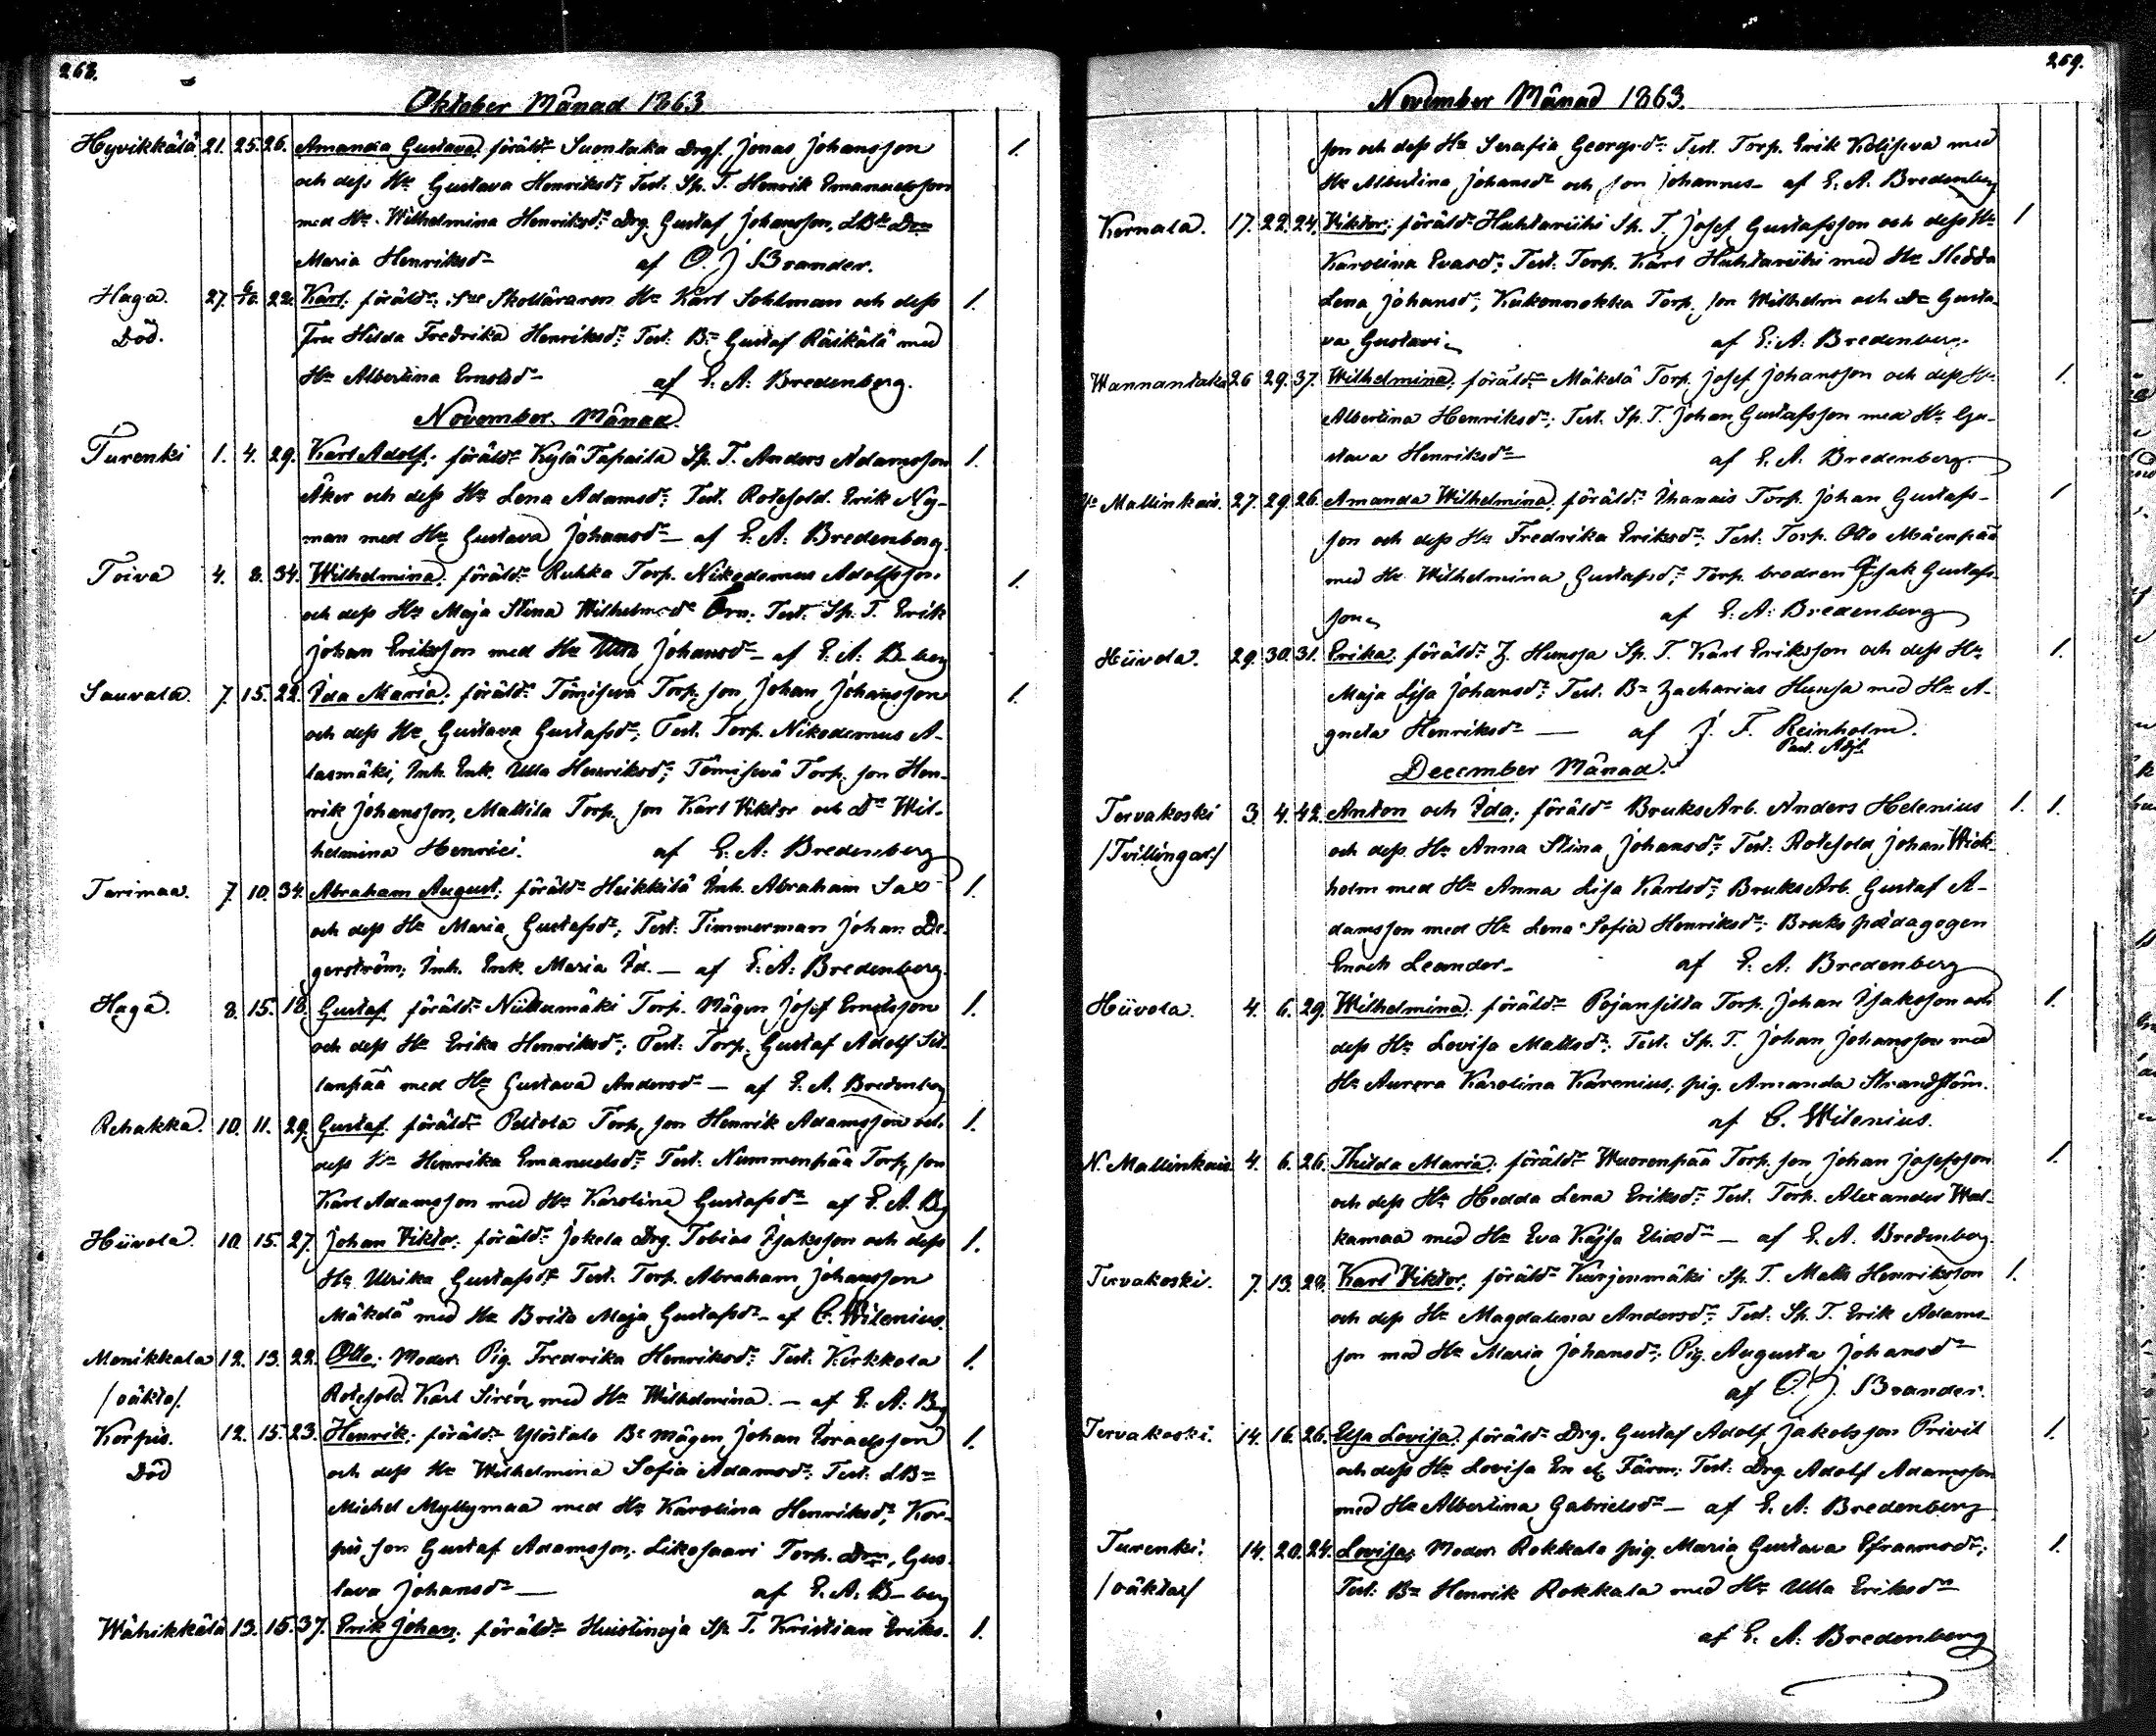 268.
Oktober Månad 1863
Hyvikkälä 21. 25. 26. Amanda Gustava; föräldr Suontaka Drgf. Jonas Johansson 1.
och dess Hu Gustava Henriksdr; Test. Sp. T. Henrik Emanuelsson
med Hu Wilhelmina Henriksdr; Drg. Gustaf Johansson, LBde Drn
Maria Henriksdr af O. J. Brander.
Haga. 27. 6/10. 22. Karl; föräldr: Skolläraren Hr Karl Sohlman och dess 1.
Död. Fru Hilda Fredrika Henriksdr; Test: Bn Gustaf Räikälä med
Hu Albertina Ernstsdr af E. A. Bredenberg.
November Månad
Turenki 1. 4. 29. Karl Adolf; föräldr Kylä Tapaila Sp. T. Anders Adamsson 1.
Åker och dess Hu Lena Adamsdr; Test. Rotesold. Erik Ny-
man med Hu Gustava Johansdr - af E. A. Bredenberg.
Toiva 4. 8. 34. Wilhelmina; föräldr Ruhka Torp. Nikodemus Adolfsson 1.
och dess Hu Maja Stina Wilhelmsdr Örn; Test: Sp. T. Erik
Johan Eriksson med Hu Johansdr - af E. A. B-berg
Sauvala. 7. 15. 22. Ida Maria; föräldr Tömisevä Torp. son Johan Johansson 1.
och dess Hu Gustava Gustafsdr; Test. Torp. Nikodemus A-
lasmäki, Inh. Enk. Ulla Henriksdr; Tömisevä Torp. son Hen-
rik Johansson, Mattila Torp. son Karl Viktor och Dr Wil-
helmina Henrici. af E. A. Bredenberg
Tarimaa. 7. 10. 34. Abraham August; föräldr Heikkilä Inh. Abraham Sax 1.
och dess Hu Maria Gustafsdr; Test: Timmerman Johan De-
gerström; Inh. Enk. Maria Id. - af E. A. Bredenberg.
Haga. 8. 15. 18. Gustaf föräldr Niittumäki Torp. Mågen Josef Ernstsson 1.
och dess Hu Erika Henriksdr; Test: Torp. Gustaf Adolf Sil-
lanpää med Hu Gustava Andersdr - af E. A. Bredenberg
Rehakka. 10. 11. 29. Gustaf föräldr Peltola Torp. son Henrik Adamsson och 1.
dess Hu Henrika Emanuelsdr; Test. Nummenpää Torp. son
Karl Adamsson med Hu Karolina Gustafsdr af E. A. Bg
Hiivola. 10. 15. 27. Johan Viktor; föräldr Jokela Drg. Tobias Isaksson och dess 1.
Hu Ulrika Gustafsdr Test. Torp. Abraham Johansson
Mäkelä med Hu Brita Maja Gustafsdr - af C. Wilenius.
Monikkala 12. 13. 22. Otto; Moder Pig. Fredrika Henriksdr; Test. Kirkkola 1.
/oäkta/. Rotesold. Karl Sirén med Hu Wilhelmina. - af E. A. Bg
Korpis. 12. 15. 23. Henrik; föräldr Ylöstalo Bn Mågen Johan Esraelsson 1.
Död och dess Hu Wilhelmina Sofia Adamsdr; Test: LBn
Michel Myllymaa med Hu Karolina Henriksdr; Kor-
pis son Gustaf Adamsson; Likosaari Torp. Drn, Gus-
tava Johansdr af E. A. B-berg
Wähikkälä 13. 15. 37. Erik Johan; föräldr Huistinoja Sp. T. Kristian Eriks- 1.
269.
November Månad 1863.
son och dess Hu Serafia Georgsdr. Test. Torp. Erik Koliseva med
Hu Albertina Johansdr och son Johannes - af E. A. Bredenberg
Kernala. 17. 22. 24. Viktor; föräldr Huhtariihi Sp. T. Josef Gustafsson och dess Hu 1
Karolina Evasdr; Test: Torp. Karl Huhtariihi med Hu Hedda
Lena Johansdr; Kukonnokka Torp. son Wilhelm och Dr Gusta-
va Gustavi. af E. A. Bredenberg.
Wannantaka 26 29. 37. Wilhelmina; föräldr Mäkelä Torp. Josef Johansson och dess Hu 1.
Albertina Henriksdr; Test. Sp. T. Johan Gustafsson med Hu Gu-
stava Henriksdr af E. A. Bredenberg.
Mallinkais. 27. 29. 26. Amanda Wilhelmina; föräldr Ihanais Torp. Johan Gustafs- 1
son och dess Hu Fredrika Eriksdr; Test. Torp. Otto Mäenpää
med Hu Wilhelmina Gustafsdr; Torp. brodren Isak Gustafs-
son af E. A. Bredenberg
Hiivola. 29. 30. 31. Erika; föräldr Z. Hunsa Sp. T. Karl Eriksson och dess Hu 1.
Maja Lisa Johansdr; Test. Bn Zacharias Hunsa med Hu A-
gneta Henriksdr af J. T. Reinholm.
Past. Adj.
December Månad.
Tervakoski 3. 4. 42. Anton och Ida; föräldr Bruks Arb. Anders Helenius 1. 1.
/Tvillingar/ och dess Hu Anna Stina Johansdr; Test: Rotesold Johan Wick-
holm med Hu Anna Lisa Karlsdr; Bruks Arb. Gustaf A-
damsson med Hu Lena Sofia Henriksdr; Bruks pædagogen
Enoch Leander - af E. A. Bredenberg
Hiivola. 4. 6. 29. Wilhelmina; föräldr Pojansilta Torp. Johan Isaksson och 1.
dess Hu Lovisa Mattsdr; Test. Sp. T. Johan Johansson med
Hu Aurora Karolina Karenius; pig. Amanda Strandström.
af C. Wilenius.
N. Mallinkais 4. 6. 26. Thilda Maria; föräldr Wuorenpää Torp. son Johan Josefsson 1.
och dess Hu Hedda Lena Eriksdr; Test. Torp. Alexander Wal-
kamaa med Hu Eva Kajsa Eliasdr - af E. A. Bredenberg.
Tervakoski. 7. 13. 28. Karl Viktor; föräldr Karjenmäki Sp. T. Matts Henriksson 1.
och dess Hu Magdalena Andersdr; Test: Sp. T. Erik Adams-
son med Hu Maria Johansdr; Pig. Augusta Johansdr
af O. J. Brander.
Tervakoski. 14. 16. 26. Elsa Lovisa; föräldr Drg. Gustaf Adolf Jakobsson Privit 1.
och dess Hu Lovisa Färm; Test: Drg. Adolf Adamsson
med Hu Albertina Gabrielsdr - af E. A. Bredenberg
Turenki. 14. 20. 24. Lovisa; Moder Rokkala pig. Maria Gustava Efraimsdr; 1.
/oäkta/ Test: Bn Henrik Rokkala med Hu Ulla Eriksdr
af E. A. Bredenberg